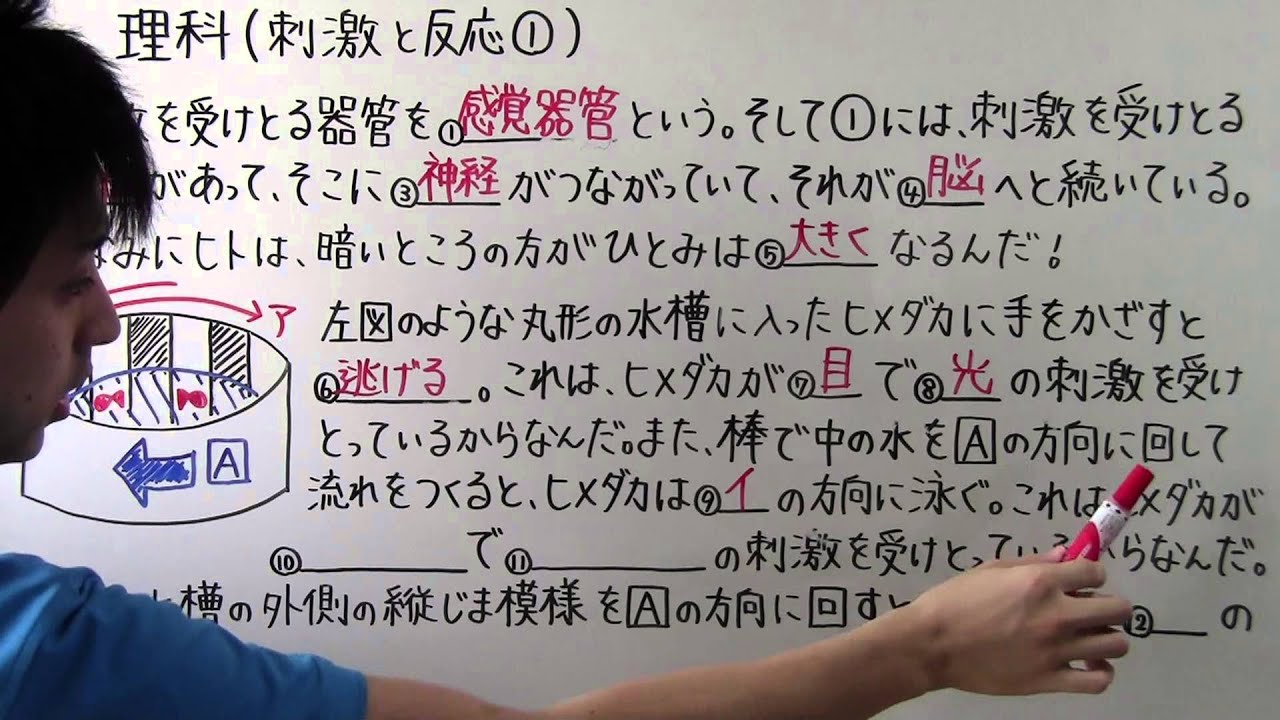 理科(刺激と反応①)
を受けとる器管を①感覚器管という。そして①には、刺激を受けとる
があって、そこに③神経がつながっていて、それが④脳へと続いている。
なみにヒトは、暗いところの方がひとみは⑤大きくなるんだ!
ア
A
左図のような丸形の水槽に入ったヒメダカに手をかざすと
⑥逃げる。これは、ヒメダカが⑦目で⑧光の刺激を受け
とっているからなんだ。また、棒で中の水をAの方向に回して
流れをつくると、ヒメダカは⑨イの方向に泳ぐ。これはヒメダカが
⑩で⑪の刺激を受けとっているからなんだ。
槽の外側の縦じま模様をAの方向に回すと ⑫の